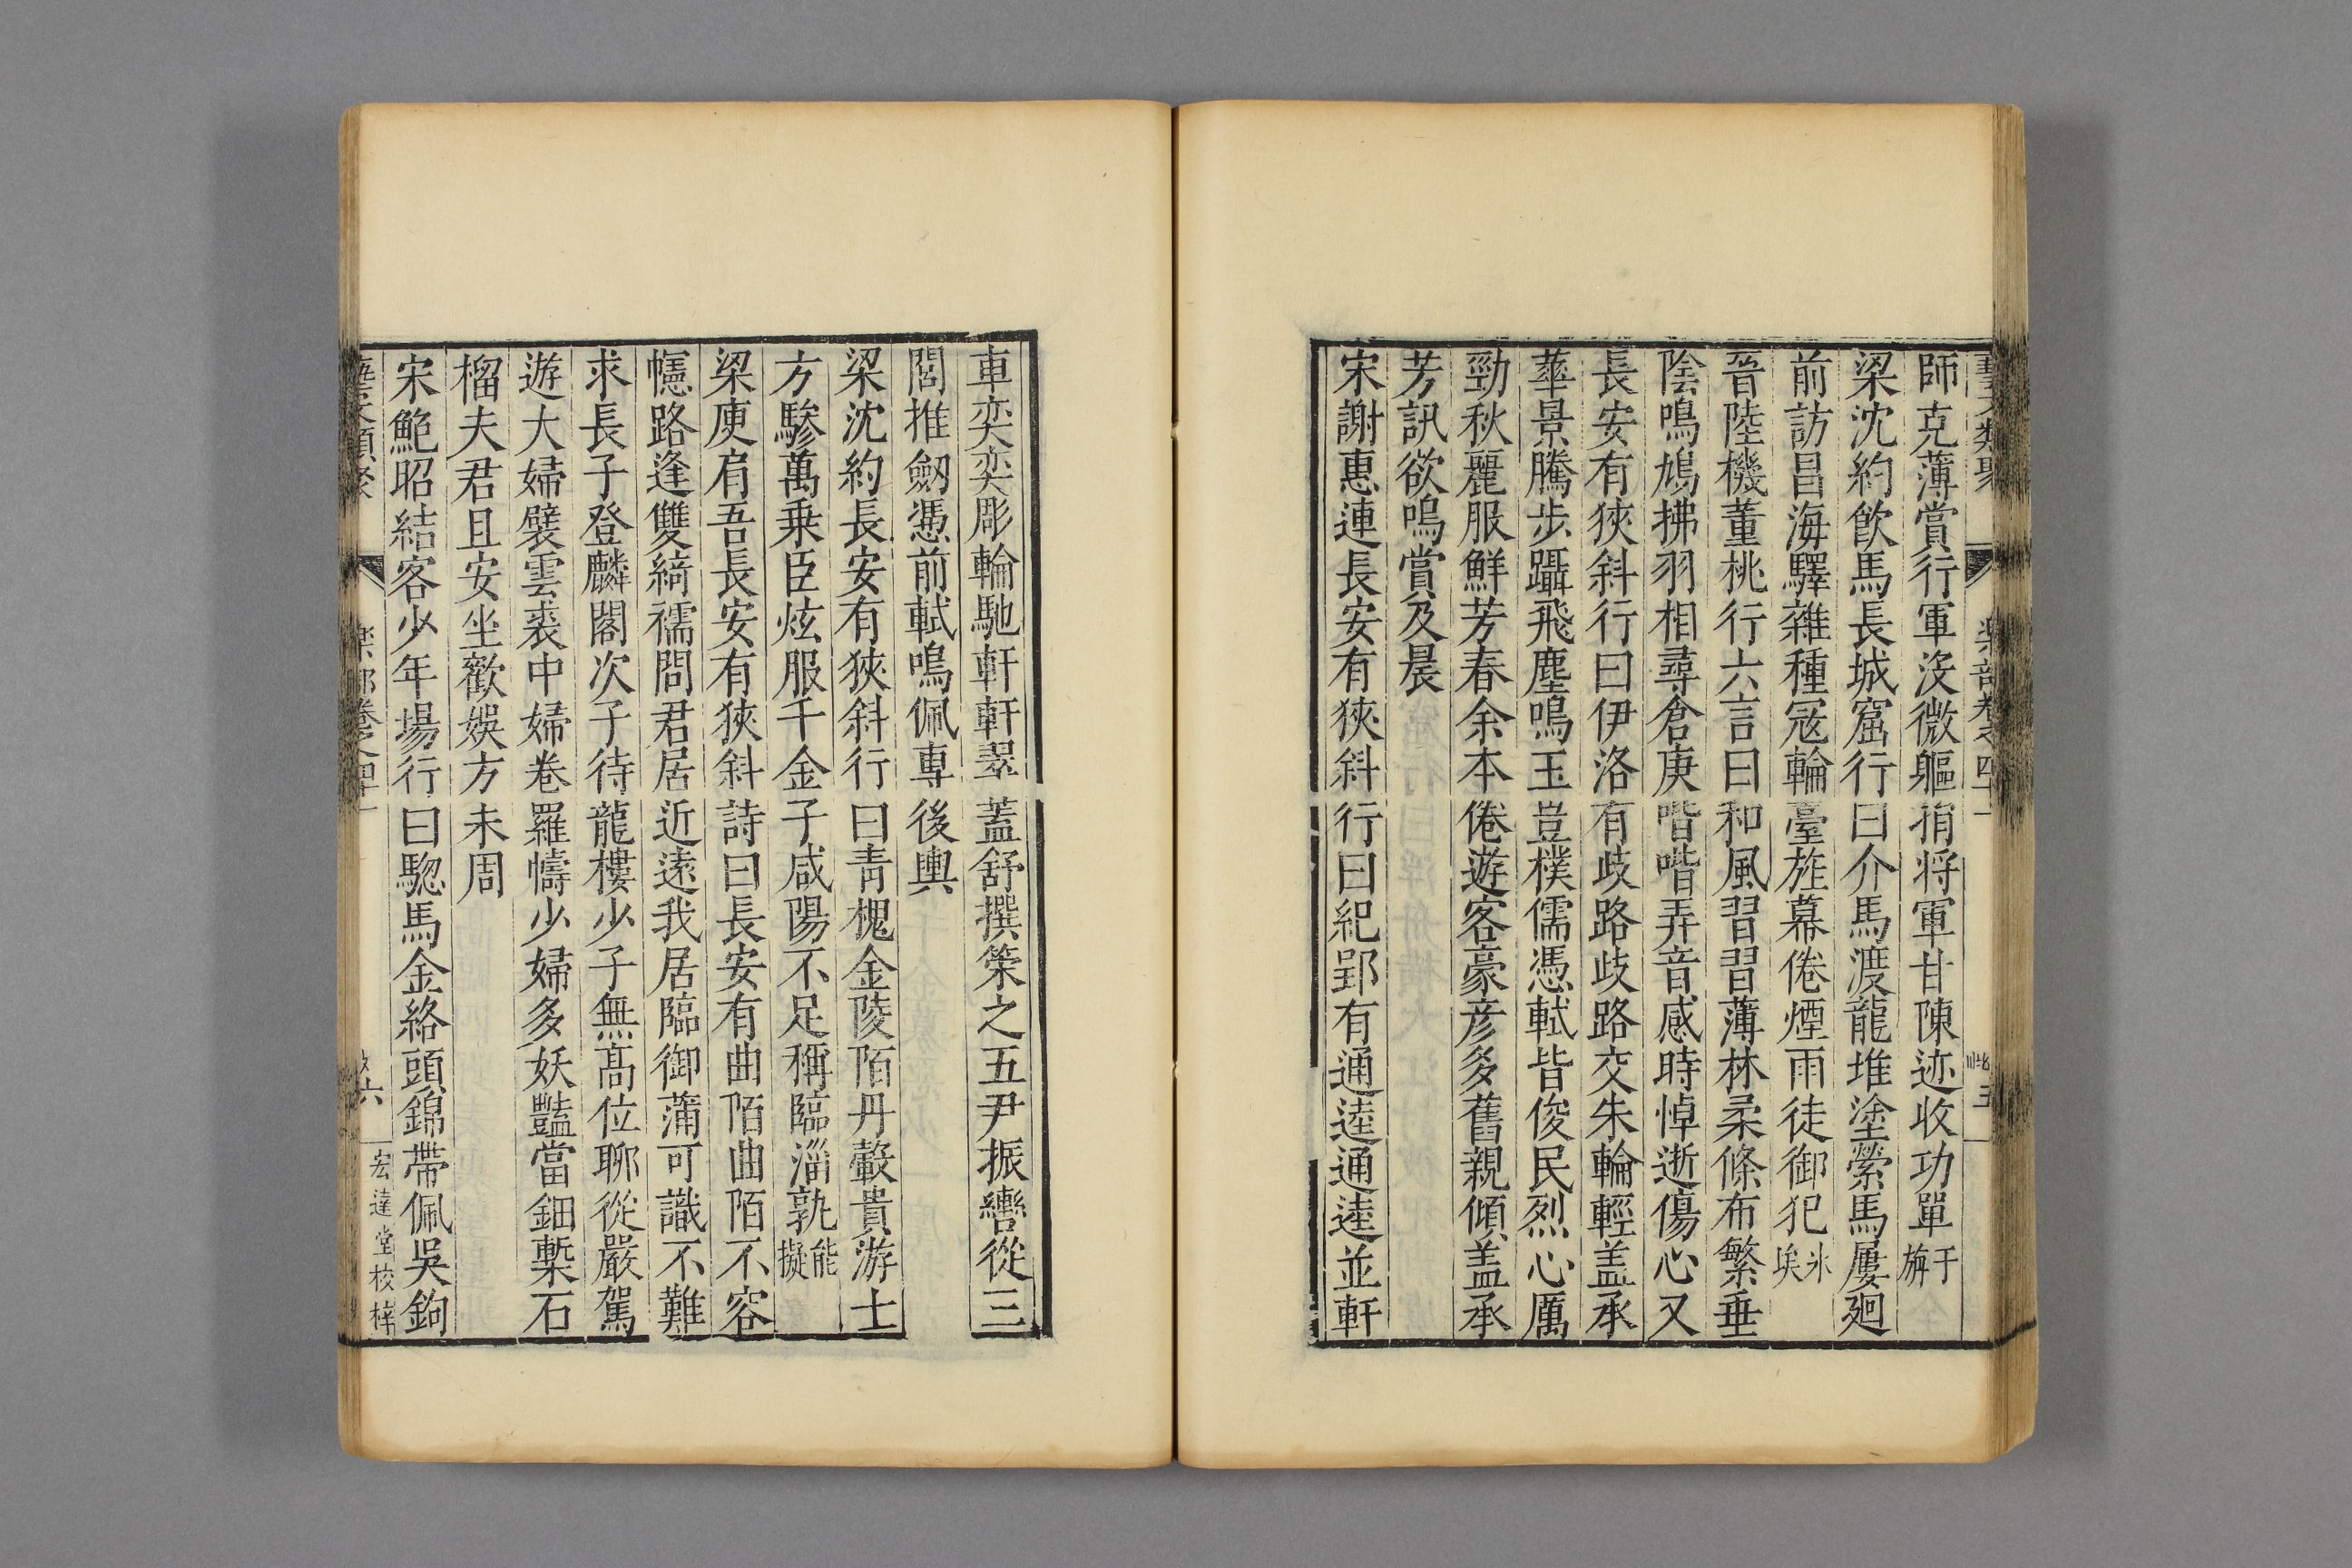 藝文類聚 樂部卷之四十一 五
師克薄賞行軍沒微軀捐将軍甘陳迹收功單于旃
梁沈約飲馬長城窟行曰介馬渡龍堆塗縈馬屢廻
前訪昌海驛雜種冦輪臺旌幕倦煙雨徒御犯氷埃
晉陸機董桃行六言曰和風習習薄林柔條布繁垂
陰鳴鳩拂羽相尋倉庚喈喈弄音感時悼逝傷心又
長安有狹斜行曰伊洛有歧路歧路交朱輪輕盖承
華景騰步躡飛塵鳴玉豈樸儒憑軾皆俊民烈心厲
勁秋麗服鮮芳春余本倦遊客豪彥多舊親傾盖承
芳訊欲嗚賞及晨
宋謝惠連長安有狹斜行曰紀郢有通逵通逵並軒
車奕奕彫輪馳軒軒翠蓋舒撰䇿之五尹振轡從三
閭推劔憑前軾鳴佩專後輿
梁沈約長安有狹斜行曰青槐金陵陌丹轂貴游士
方驂萬乗臣炫服千金子咸陽不足稱臨淄孰能擬
梁庾肩吾長安有狹斜詩曰長安有曲陌曲陌不容
幰路逢雙綺襦問君居近遠我居臨御蒲可識不難
求長子登麟閣次子待龍樓少子無髙位聊從嚴駕
遊大婦襞雲裘中婦卷羅幬少婦多妖豔當鈿槧石
榴夫君且安坐歡娛方未周
宋鮑昭結客少年場行曰驄馬金絡頭錦帶佩吳鉤
藝文類聚 樂部卷之四十一 六 宏達堂校梓